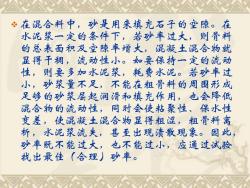 在混合料中，砂是用来填充石子的空隙。在
水泥浆一定的条件下，若砂率过大，则骨料
的总表面积及空隙率增大，混凝土混合物就
显得干稠，流动性小。如要保持一定的流动
性，则要多加水泥浆，耗费水泥。若砂率过
小，砂浆量不足，不能在粗骨料的周围形成
足够的砂浆层起润滑和填充作用，也会降低
混合物的流动性，同时会使粘聚性、保水性
变差，使混凝土混合物显得粗涩，粗骨料离
析，水泥浆流失，甚至出现溃散现象。因此，
砂率既不能过大，也不能过小，应通过试验
找出最佳（合理）砂率。